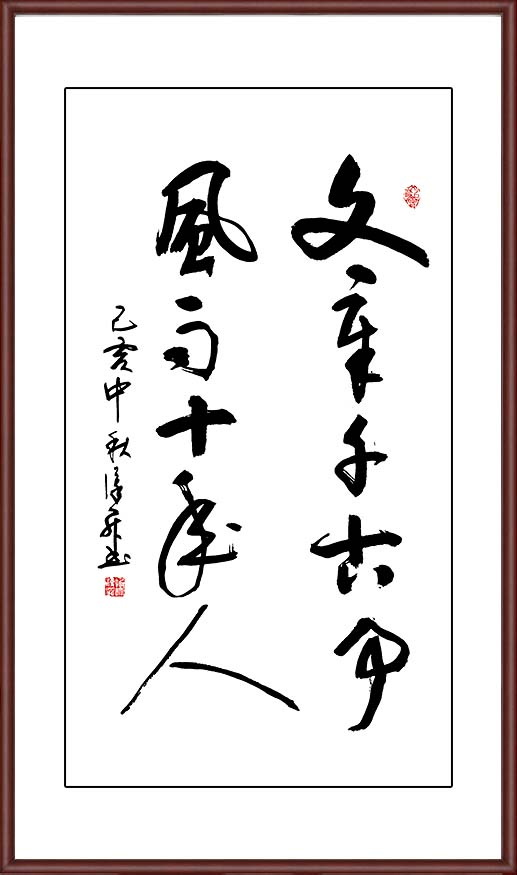 文章千古事
風雨十年人
己亥中秋书